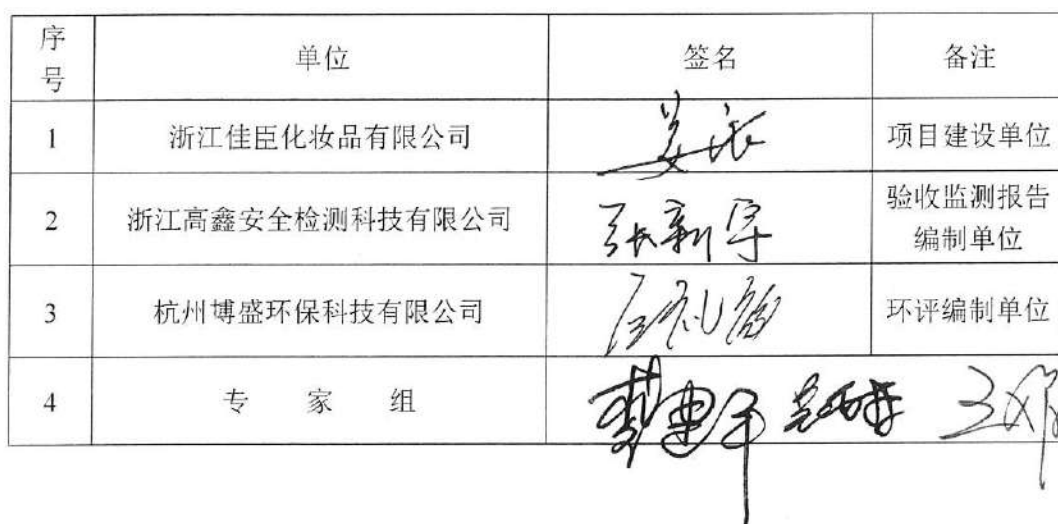 序号 单位 签名 备注
1 浙江佳臣化妆品有限公司 项目建设单位
2 浙江高鑫安全检测科技有限公司 张新宇 验收监测报告
编制单位
3 杭州博盛环保科技有限公司 环评编制单位
4 专家组